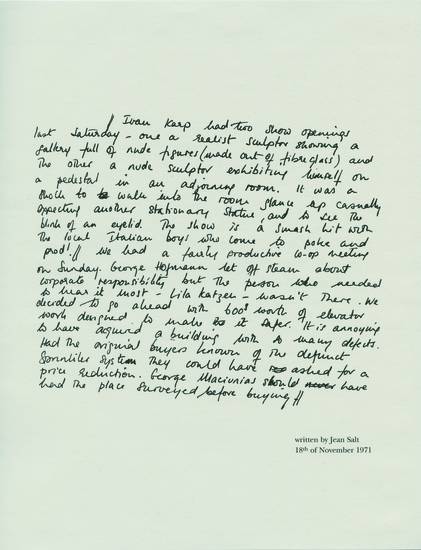 // Ivan Karp had two show openings
last Saturday - one a realist sculptor showing a
gallery full of nude figures (made out of fibreglass) and
the other a nude sculptor exhibiting himself on
a pedestal in an adjoining room. It was a
shock to walk into the room glance up casually
expecting another stationary statue, and to see the
blink of an eyelid. The show is a smash hit with
the local Italian boys who come to poke and
prod! // We had a fairly productive co-op meeting
on Sunday. George Hofmann let off steam about
corporate responsibility but the person who needed
to hear it most - Lila Katzen - wasn't there. We
decided to go ahead with 600$ worth of elevator
work designed to make it safer. It is annoying
to have acquired a building with so many defects.
Had the original buyers known of the defunct
sprinkler system they could have asked for a
price reduction. George Maciunias should have
had the place surveyed before buying //
written by Jean Salt
18th of November 1971